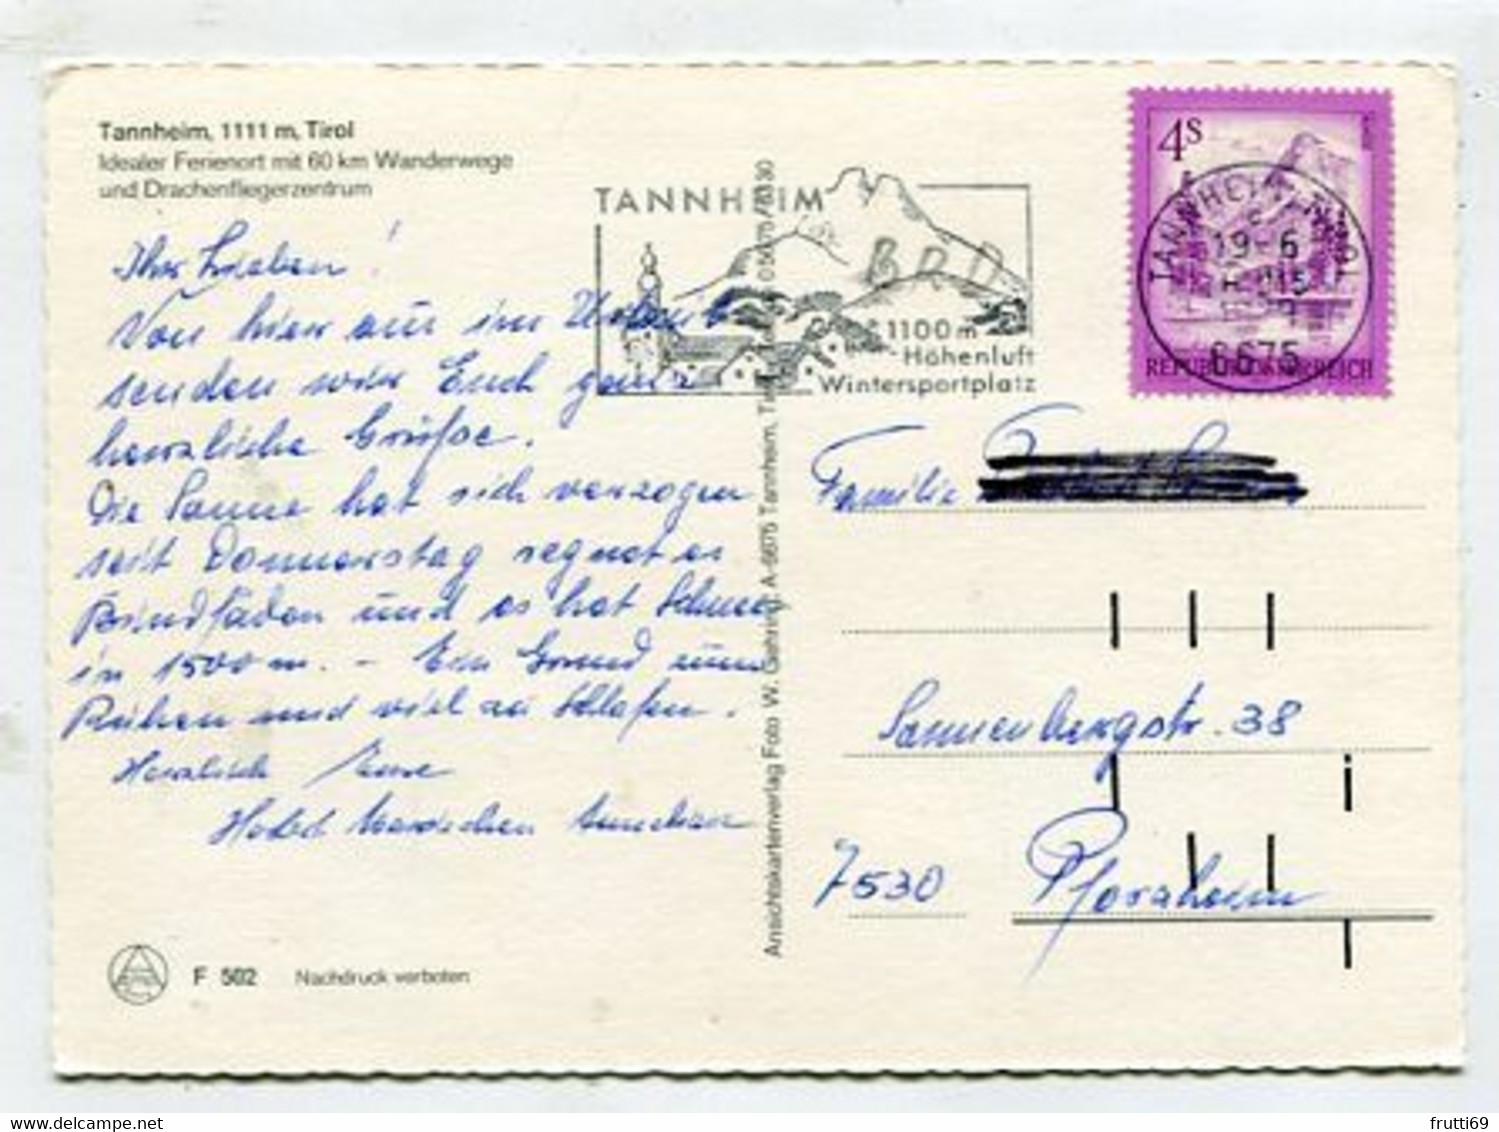 Tannheim, 1111 m, Tirol
Idealer Ferienort mit 60 km Wanderwege
und Drachenfliegerzentrum
Ihr Lieben!
Von hier aus im Urlaub
senden wir Euch ganz
herzliche Grüße.
Die Sonne hat sich verzogen
seit Donnerstag regnet es
Bindfäden und es hat Schnee
in 1500 m. – Ein Grund zum
Ruhen und viel zu Schlafen.
Herzlich Eure
Hotel
F 502 Nachdruck verboten
Ansichtskartenverlag Foto W. Gehring, A-6675 Tannheim, Tirol
TANNHEIM
1100 m
Höhenluft
Wintersportplatz
4S
REPUBLIK ÖSTERREICH
TANNHEIM, TIROL
19-6
6675
Familie
Sonnenbergstr. 38
7530 Pforzheim
frutti69